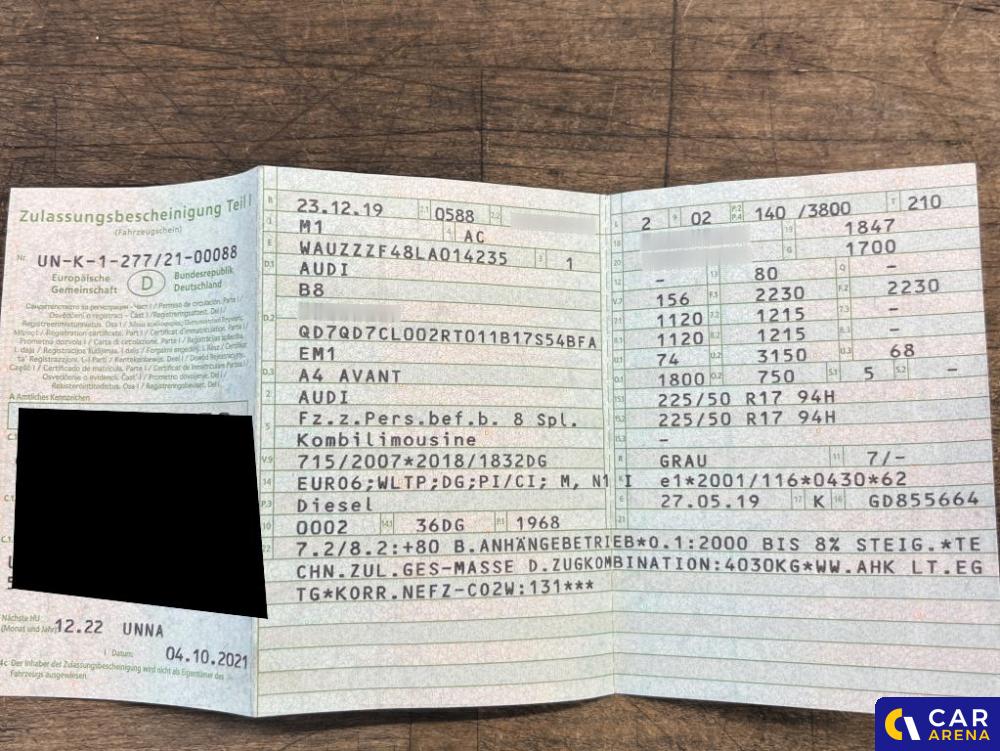 Zulassungsbescheinigung Teil I
(Fahrzeugschein)
Nr. UN-K-1-277/21-00088
Europäische Gemeinschaft D Bundesrepublik Deutschland
A Amtliches Kennzeichen
Nächste HU
(Monat und Jahr) 12.22 UNNA
I Datum: 04.10.2021
4c Der Inhaber der Zulassungsbescheinigung wird nicht als Eigentümer des
Fahrzeugs ausgewiesen.
B 23.12.19 2.1 0588 2.2
M1 4 AC
E WAUZZZF48LA014235 3 1
D.1 AUDI
B8
D.2
QD7QD7CL002RT011B17S54BFA
EM1
D.3 A4 AVANT
2 AUDI
5 Fz.z.Pers.bef.b. 8 Spl.
Kombilimousine
V.9 715/2007*2018/1832DG
14 EURO6;WLTP;DG;PI/CI; M, N1 I
P.3 Diesel
10 0002 14.1 36DG P.1 1968
22 7.2/8.2:+80 B.ANHÄNGEBETRIEB*0.1:2000 BIS 8% STEIG.*TE
CHN.ZUL.GES-MASSE D.ZUGKOMBINATION:4030KG*WW.AHK LT.EG
TG*KORR.NEFZ-CO2W:131***
L 2 9 02 P.2 P.4 140 /3800 T 210
18 19 1847
20 G 1700
12 - 13 80 Q -
V.7 156 F.1 2230 F.2 2230
7.1 1120 7.2 1215 7.3 -
8.1 1120 8.2 1215 8.3 -
U.1 74 U.2 3150 U.3 68
O.1 1800 O.2 750 S.1 5 S.2 -
15.1 225/50 R17 94H
15.2 225/50 R17 94H
15.3 -
R GRAU 11 7/-
K e1*2001/116*0430*62
6 27.05.19 17 K 16 GD855664
21
CAR
ARENA